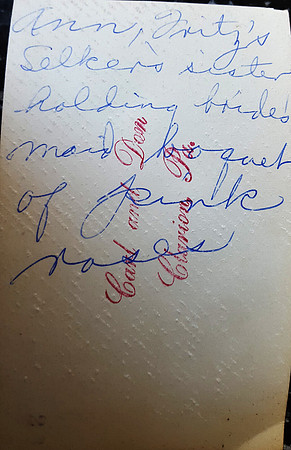 Ann, Fritz's
Selker's sister
holding bride's
maid boquet
of pink
roses
Carl and Don
Clarion, Pa.